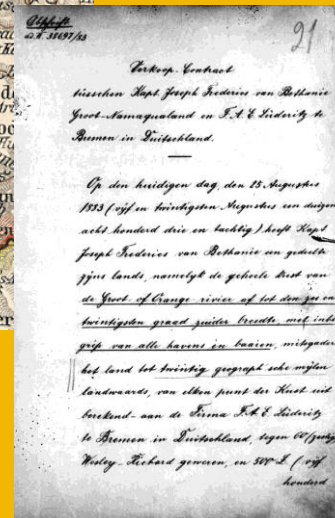 Abschrift
21
Verkoop-Contract
tusschen Kapt. Joseph Frederics van Bethanie
Groot-Namaqualand en F. A. E. Lüderitz te
Bremen in Duitschland.
Op den huidigen dag, den 25 Augustus
1883 (vijf en twintigsten Augustus een duizen
acht honderd drie en tachtig) heeft Kapt
Joseph Frederics van Bethanie een gedeelte
zijns lands, namelyk de geheele Kust van
de Groot of Orange rivier af tot den zes en
twintigsten graad zuider breedte, met inbe
grip van alle havens en baaien, mitsgader
het land tot twintig geographische mylen
landwaards, van elken punt der Kust uit
berekend - aan de Firma F. A. E. Lüderitz
te Bremen in Duitschland, tegen 60 (zestig
Westley-Richard geweren, en 500 £ (vijf
honderd